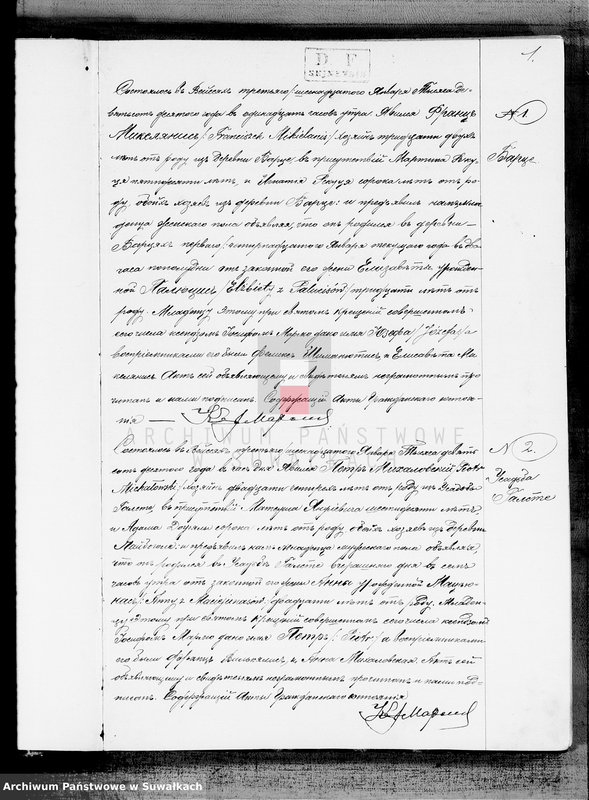 D F
1.
№ 1
Барце
Состоялось въ Вейсеяхъ третьяго/шестнадцатого Января тысяча де-
вятьсотъ десятого года в одинадцать часовъ утра. Явился Францъ
Микелянисъ / Franciszek Mikielanis / хозяинъ тридцати двухъ
лѣтъ отъ роду изъ деревни Барце, въ присутствіи Мартина
пятидесяти лѣтъ, и Игнатія сорока лѣтъ отъ ро-
ду, обоихъ хозяевъ изъ деревни Барце: и предъявилъ намъ мла-
денца женского пола объявляя, что онъ родился въ деревнѣ
Барцяхъ первого/четырнадцатого Января текущего года въ два
часа пополудни отъ законной его жены Елизаветы, урожден-
ной Палюцисъ / Elżbiety z Palucisów / тридцати лѣтъ отъ
роду. Младенцу этому при святомъ крещеніи совершенномъ
сего числа ксендзомъ Іосифомъ Марго дано имя Юзефа / Józefa / а
воспріемниками его были Феликсъ и Елисавета Ми-
келянисъ. Актъ сей объявляющему и свидѣтелямъ неграмотнымъ про-
читанъ и нами подписанъ. Содержащій Акты Гражданского состоя-
нія
ARCHIWUM PAŃSTWOWE
№ 2.
Усадьба
Галсте
Состоялось въ Вейсеяхъ третьяго/шестнадцатого Января тысяча девять-
сотъ десятого года в часъ дня. Явился Петръ Михаловскій / Piotr
Michałowski / хозяинъ двадцати четырехъ лѣтъ отъ роду изъ Усадьбы
Галсте, въ присутствіи Матеуша шестидесяти лѣтъ,
и Адама сорока лѣтъ отъ роду обоихъ хозяевъ изъ деревни
и предъявилъ намъ младенца мужеского пола объявляя,
что онъ родился въ Усадьбѣ Галсте вчерашняго дня въ семь
часовъ утра отъ законной его жены Анны урожденной Мацю-
насъ / Anny z Maciejonisów / двадцати лѣтъ отъ роду. Младен-
цу этому при святомъ крещеніи совершенномъ сего числа ксендзомъ
Іосифомъ Марго дано имя Петръ / Piotr / а воспріемниками
его были Францъ и Анна Михаловская. Актъ сей
объявляющему и свидѣтелямъ неграмотнымъ прочитанъ и нами под-
писанъ. Содержащій Акты Гражданского состоянія
Archiwum Państwowe w Suwałkach